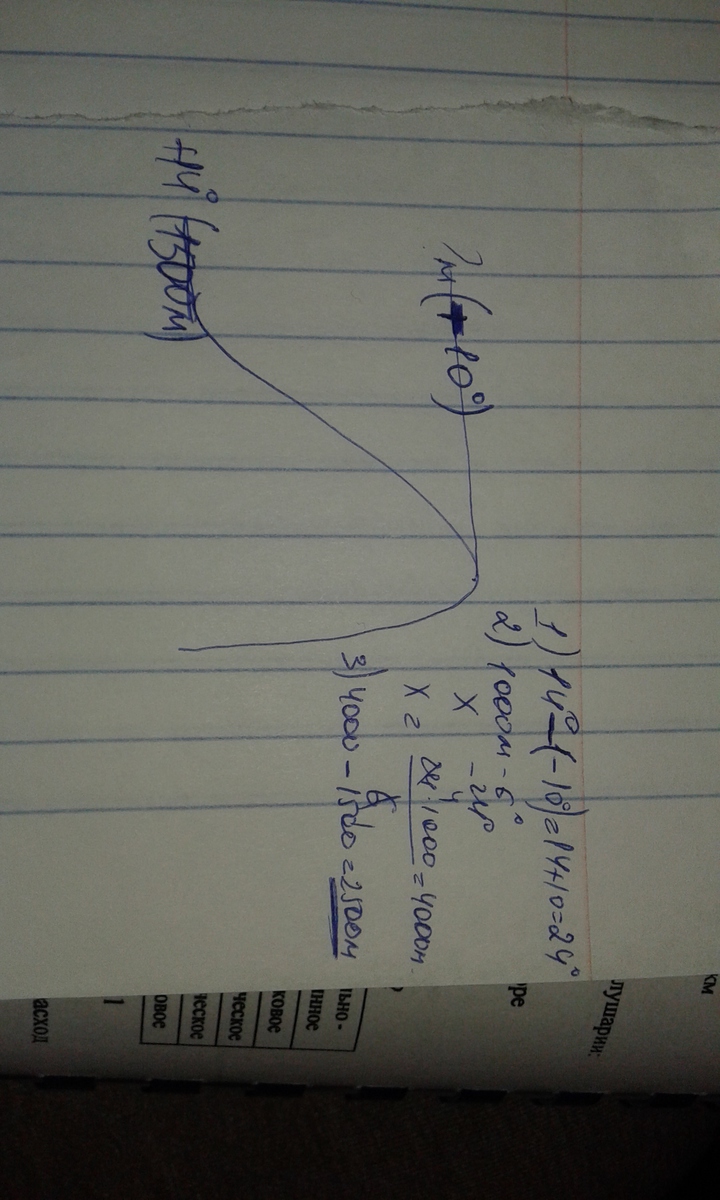 ?м (-10°)
+14° (1500м)
1) 14° - (-10°) = 14+10 = 24°
2) 1000м - 6°
X - 24°
X = 24·1000 / 6 = 4000м.
4
3) 4000 - 1500 = 2500м
км
лушарии:
оре
льно -
нное
ковое
ческое
ческое
овое
1
асход